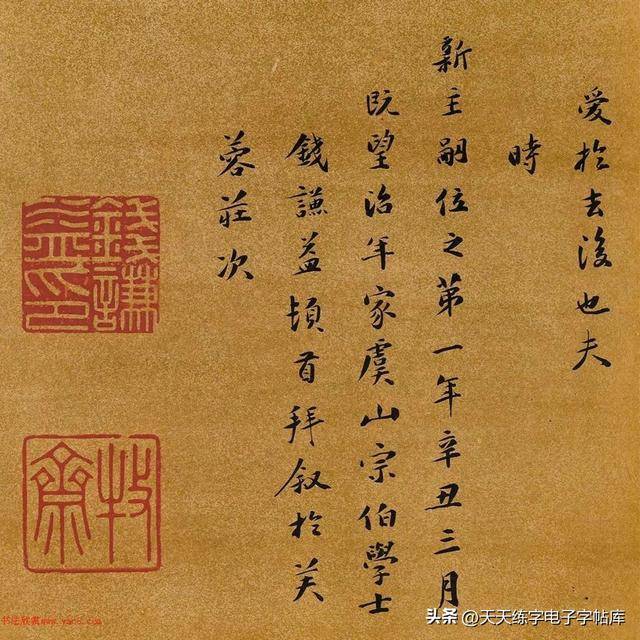 愛於去後也夫
時
新主嗣位之第一年辛丑三月
既望治年家虞山宗伯學士
錢謙益頓首拜叙於芙
蓉莊次
錢謙益印
牧齋
书法欣赏www.yac8.com
头条@天天练字电子字帖库